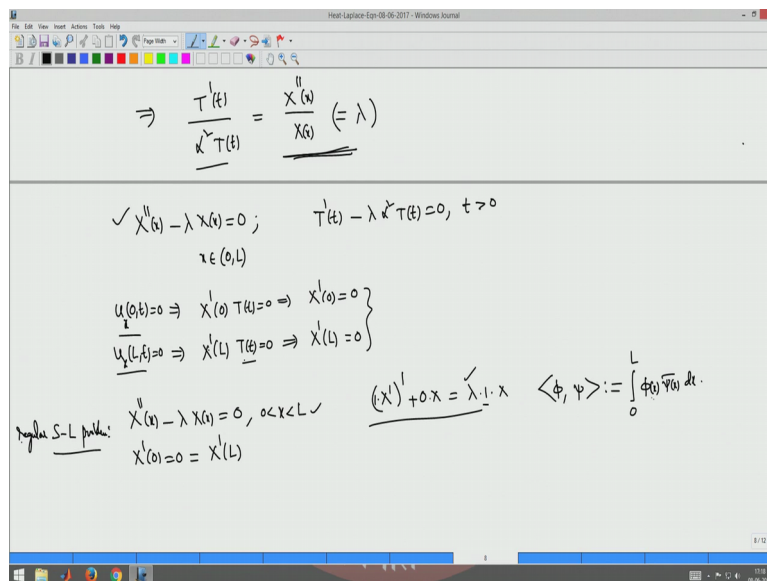 Heat-Laplace-Eqn-08-06-2017 - Windows Journal
File Edit View Insert Actions Tools Help
Page Width
B I
⇒ T'(t) / α² T(t) = X''(x) / X(x) (= λ)
✓ X''(x) – λ X(x) = 0 ; T'(t) – λ α² T(t) = 0, t > 0
x ∈ (0,L)
u_x(0,t) = 0 ⇒ X'(0) T(t) = 0 ⇒ X'(0) = 0 }
u_x(L,t) = 0 ⇒ X'(L) T(t) = 0 ⇒ X'(L) = 0 }
Regular S-L problem: X''(x) – λ X(x) = 0, 0 < x < L ✓ (1·X')' + 0·X = λ·1·X ✓ <φ, ψ> := ∫₀ᴸ φ(x) ψ̅(x) dx.
X'(0) = 0 = X'(L)
8 / 12
8
17:18